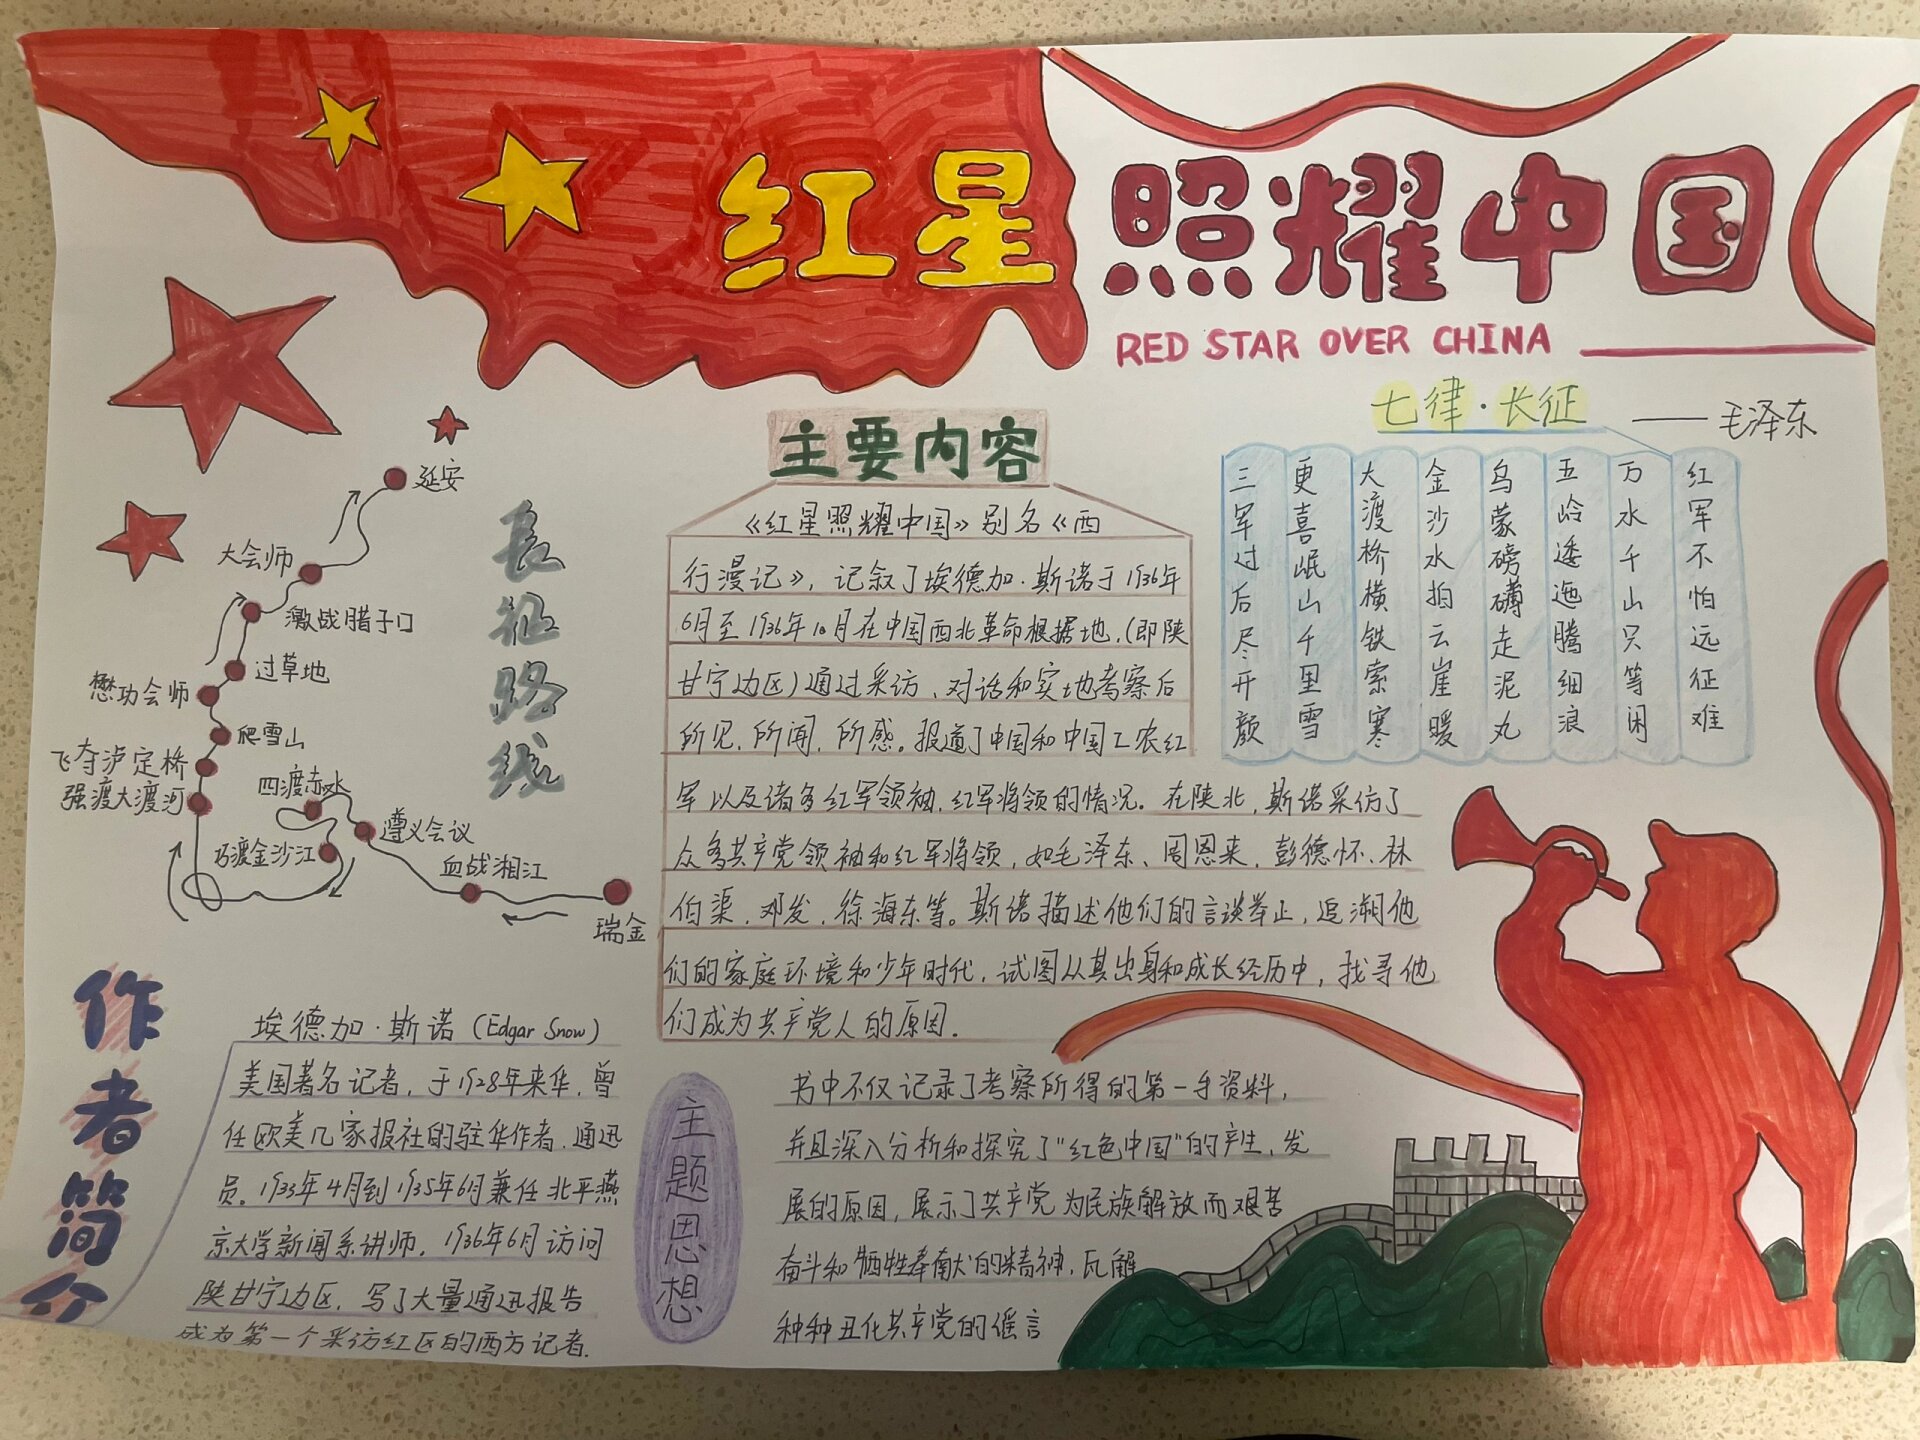 红星照耀中国
RED STAR OVER CHINA
七律·长征
——毛泽东
红军不怕远征难
万水千山只等闲
五岭逶迤腾细浪
乌蒙磅礴走泥丸
金沙水拍云崖暖
大渡桥横铁索寒
更喜岷山千里雪
三军过后尽开颜
主要内容
《红星照耀中国》别名《西
行漫记》，记叙了埃德加·斯诺于1936年
6月至1936年10月在中国西北革命根据地，(即陕
甘宁边区)通过采访、对话和实地考察后
所见，所闻，所感。报道了中国和中国工农红
军以及诸多红军领袖，红军将领的情况。在陕北，斯诺采仿了
众多共产党领袖和红军将领，如毛泽东、周恩来，彭德怀、林
伯渠，邓发，徐海东等。斯诺描述他们的言谈举止，追溯他
们的家庭环境和少年时代，试图从其出身和成长经历中，找寻他
们成为共产党人的原因.
长征路线
延安
大会师
激战腊子口
过草地
懋功会师
爬雪山
飞夺泸定桥
强渡大渡河
四渡赤水
遵义会议
巧渡金沙江
血战湘江
瑞金
作者简介
埃德加·斯诺(Edgar Snow)
美国著名记者，于1928年来华，曾
任欧美几家报社的驻华作者，通迅
员。1933年4月到1935年6月兼任北平燕
京大学新闻系讲师，1936年6月访问
陕甘宁边区，写了大量通迅报告
成为第一个采访红区的西方记者.
主题思想
书中不仅记录了考察所得的第一手资料，
并且深入分析和探究了"红色中国"的产生，发
展的原因，展示了共产党为民族解放而艰苦
奋斗和牺牲奉献的精神，瓦解
种种丑化共产党的谣言